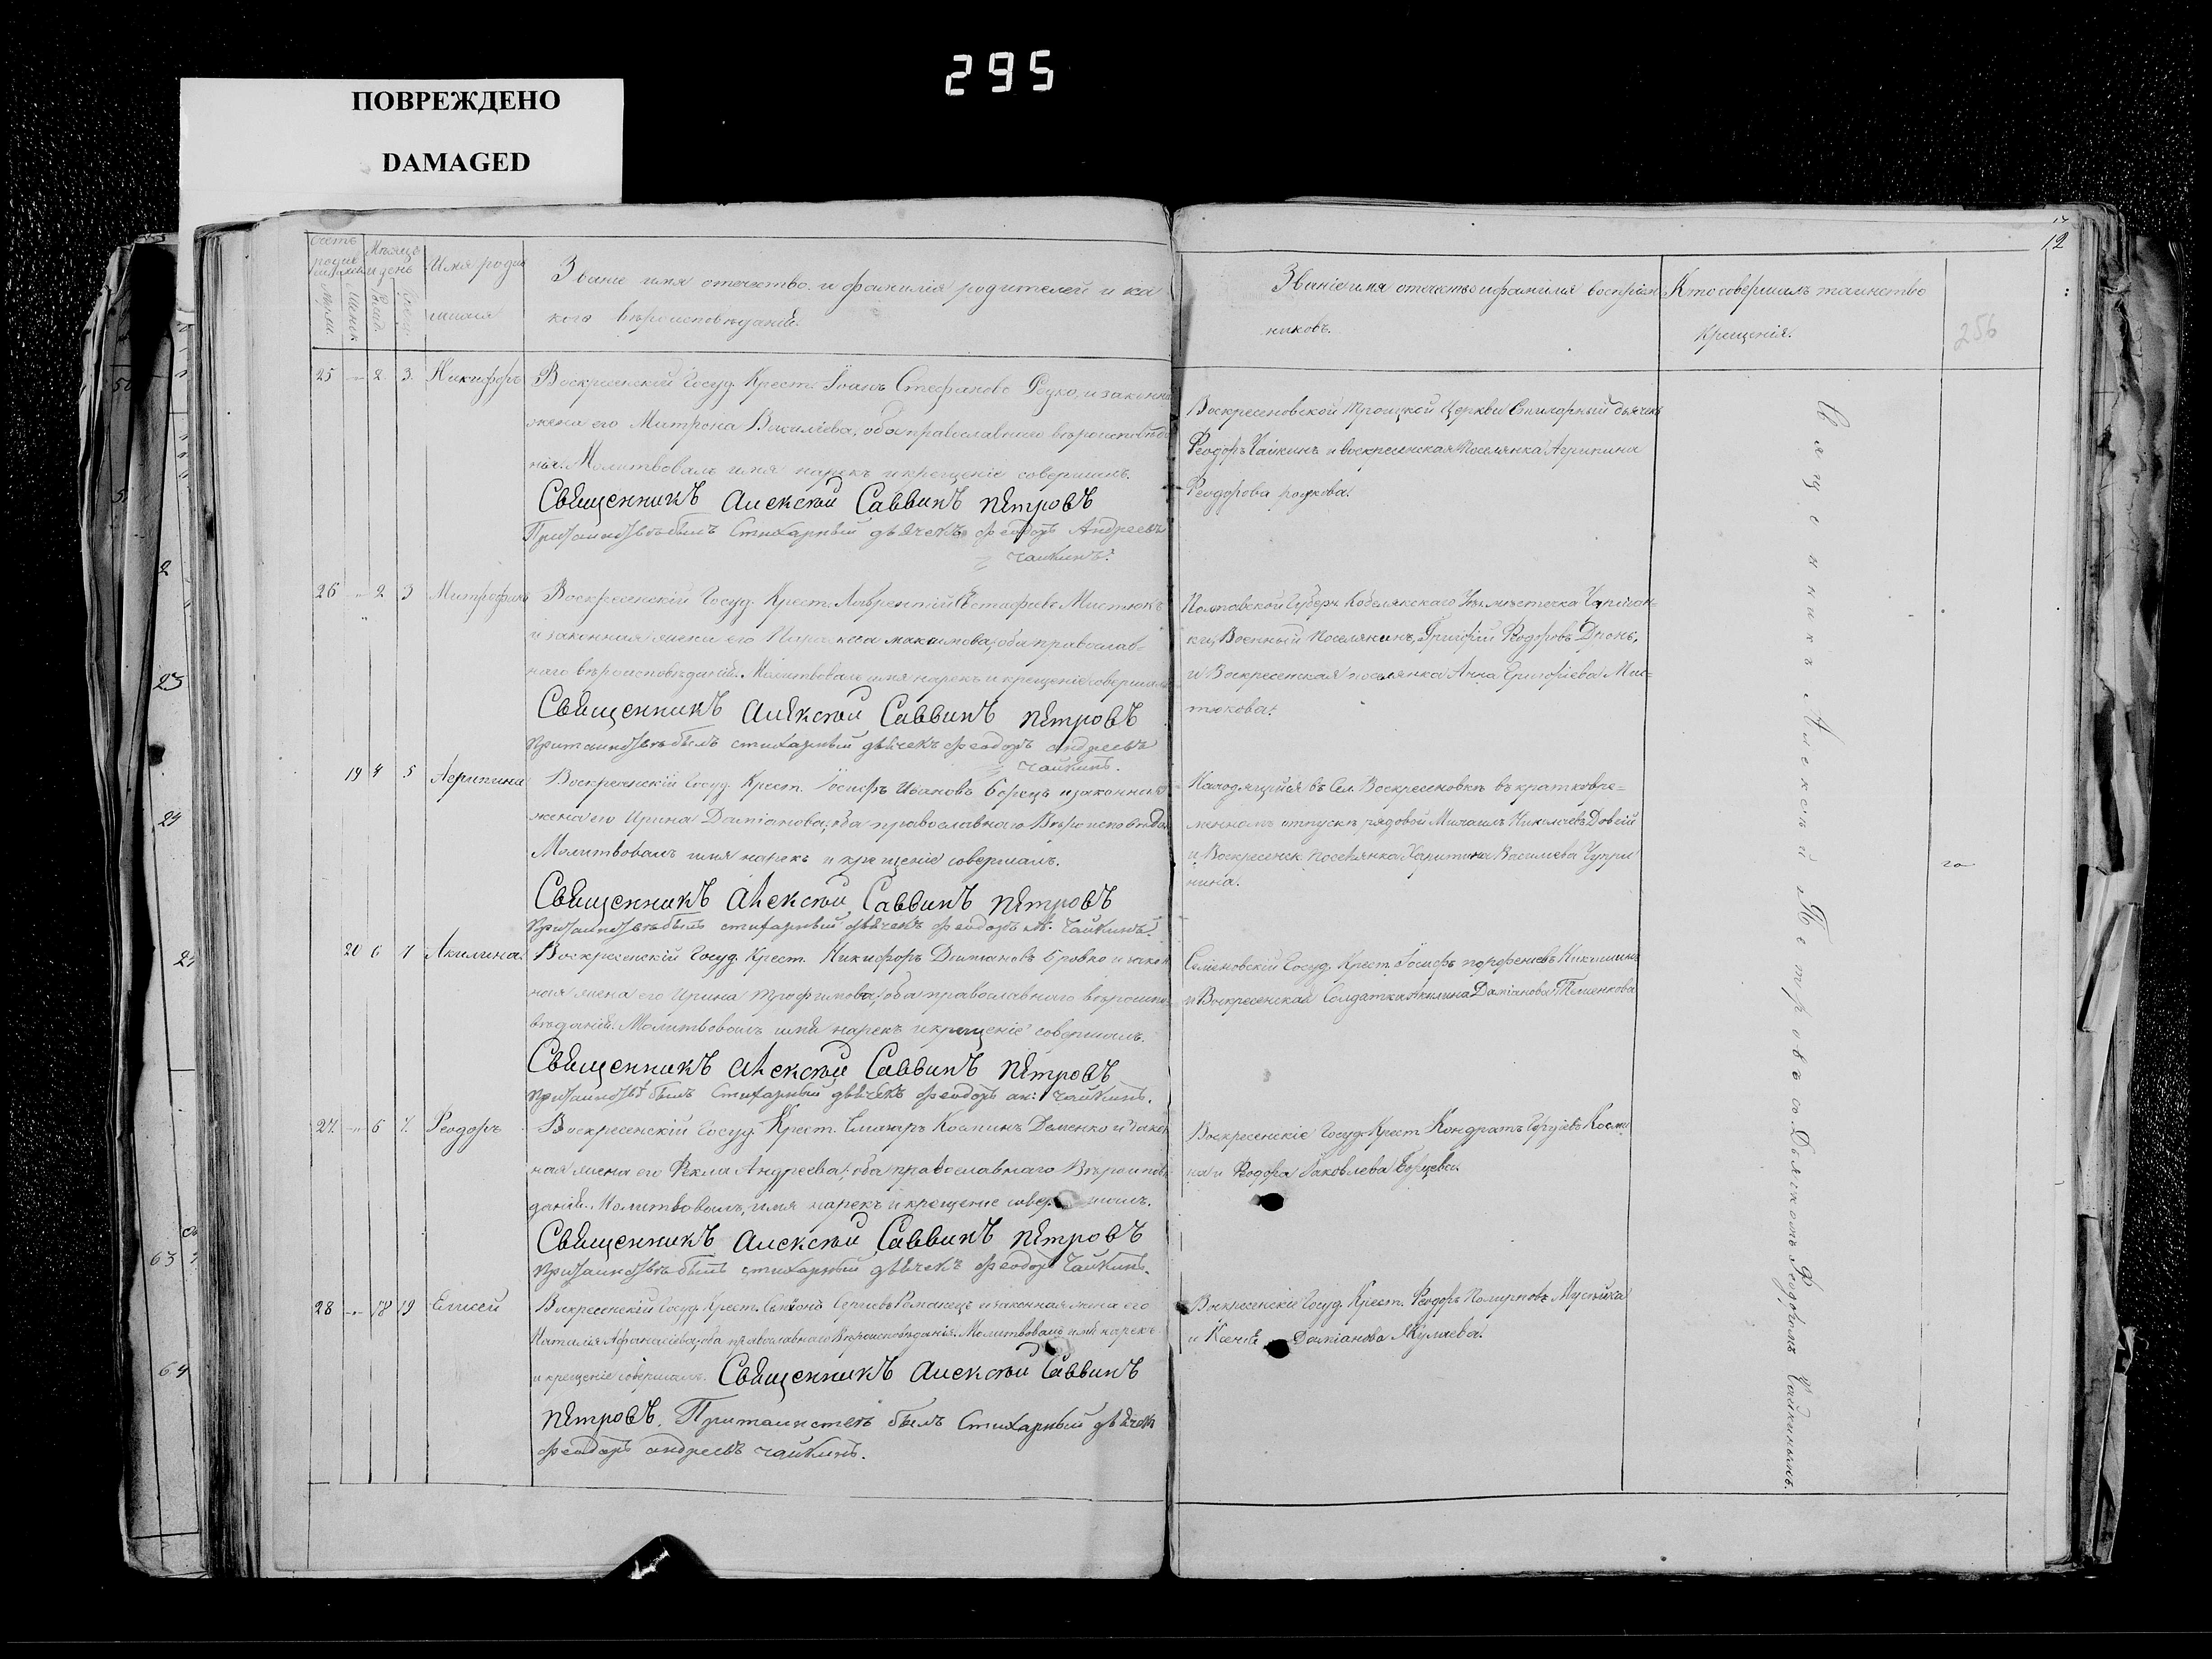 295
ПОВРЕЖДЕНО
DAMAGED
12
256
Мѣяцъ
и день
Имя роди
шихся
Званіе имя отечество и фамилія родителей и ка
кого вѣроисповѣданія.
Званіе имя отечество и фамилія воспріем
никовъ.
Кто совершалъ таинство
Крещенія.
25 2 3. Никифоръ
Воскресенскій Госуд. Крест. Іоанъ Стефановъ и законная
жена его Матрона Василіева, оба православнаго вѣроисповѣда
нія. Молитвовалъ имя нарекъ и крещеніе совершилъ.
Священникъ Алексѣй Саввинъ Петровъ
При таинствѣ былъ Стихарный дьячекъ Феодоръ Андреевъ
Чайкинъ.
Воскресеновской Троицкой Церкви Стихарный дьячекъ
Феодоръ Чайкинъ и Воскресенская Поселянка Агрипина
Феодорова
26 2 3 Митрофанъ
Воскресенскій Госуд. Крест. Лаврентій Евстафьевъ Мистюкъ
и законная жена его Максимова, оба православ-
наго вѣроисповѣданія. Молитвовалъ имя нарекъ и крещеніе совершалъ
Священникъ Алексѣй Саввинъ Петровъ
При таинствѣ былъ стихарный дьячекъ Феодоръ Андреевъ
Чайкинъ.
Полтавской Губерн. Кобелякскаго мѣстечка
Военный Поселянинъ, Григорій Феодоровъ
и Воскресенская поселянка Анна Григоріева Мис-
тюкова.
19 4 5 Агрипина
Воскресенскій Госуд. Крест. Іосифъ Ивановъ Борецъ и законная
жена его Ирина Даміанова, оба православнаго Вѣроисповѣдан
Молитвовалъ имя нарекъ и крещеніе совершалъ.
Священникъ Алексѣй Саввинъ Петровъ
При таинствѣ былъ стихарный дьячекъ Феодоръ Чайкинъ.
Находящійся въ Сел. Воскресеновкѣ въ кратковре-
менномъ отпускѣ рядовой Михаилъ Николаевъ Довгій
и Воскресенск. поселянка Харитина Василіева Чупри
нина.
20 6 7 Акилина.
Воскресенскій Госуд. Крест. Никифоръ Даміановъ Бровко и закон
ная жена его Ирина Трофимова, оба православнаго вѣроиспо-
вѣданія. Молитвовалъ имя нарекъ и крещеніе совершалъ.
Священникъ Алексѣй Саввинъ Петровъ
При таинствѣ былъ Стихарный дьячекъ Феодоръ ан: Чайкинъ.
Госуд. Крест. Іосифъ
и Воскресенская Солдатка Акилина Даміанова
27. 6 7. Феодоръ
Воскресенскій Госуд. Крест. Косминъ Деменко и закон
ная жена его Фекла Андреева, оба православнаго Вѣроисповѣ
данія. Молитвовалъ, имя нарекъ и крещеніе совершалъ.
Священникъ Алексѣй Саввинъ Петровъ
При таинствѣ былъ стихарный дьячекъ Феодоръ Чайкинъ.
Воскресенскіе Госуд. Крест. Кондратъ
и Феодора Іаковлева Борцева.
28 18 19 Елисей
Воскресенскій Госуд. Крест. Сергіевъ Романецъ и законная жена его
Наталія Афанасіева, оба православнаго Вѣроисповѣданія. Молитвовалъ имя нарекъ
и крещеніе совершалъ. Священникъ Алексѣй Саввинъ
Петровъ. При таинствѣ былъ Стихарный дьячекъ
Феодоръ Андреевъ Чайкинъ.
Воскресенскіе Госуд. Крест. Феодоръ
и Даміанова
Священникъ Алексѣй Петровъ со Дьячкомъ Федоромъ Чайкинымъ.